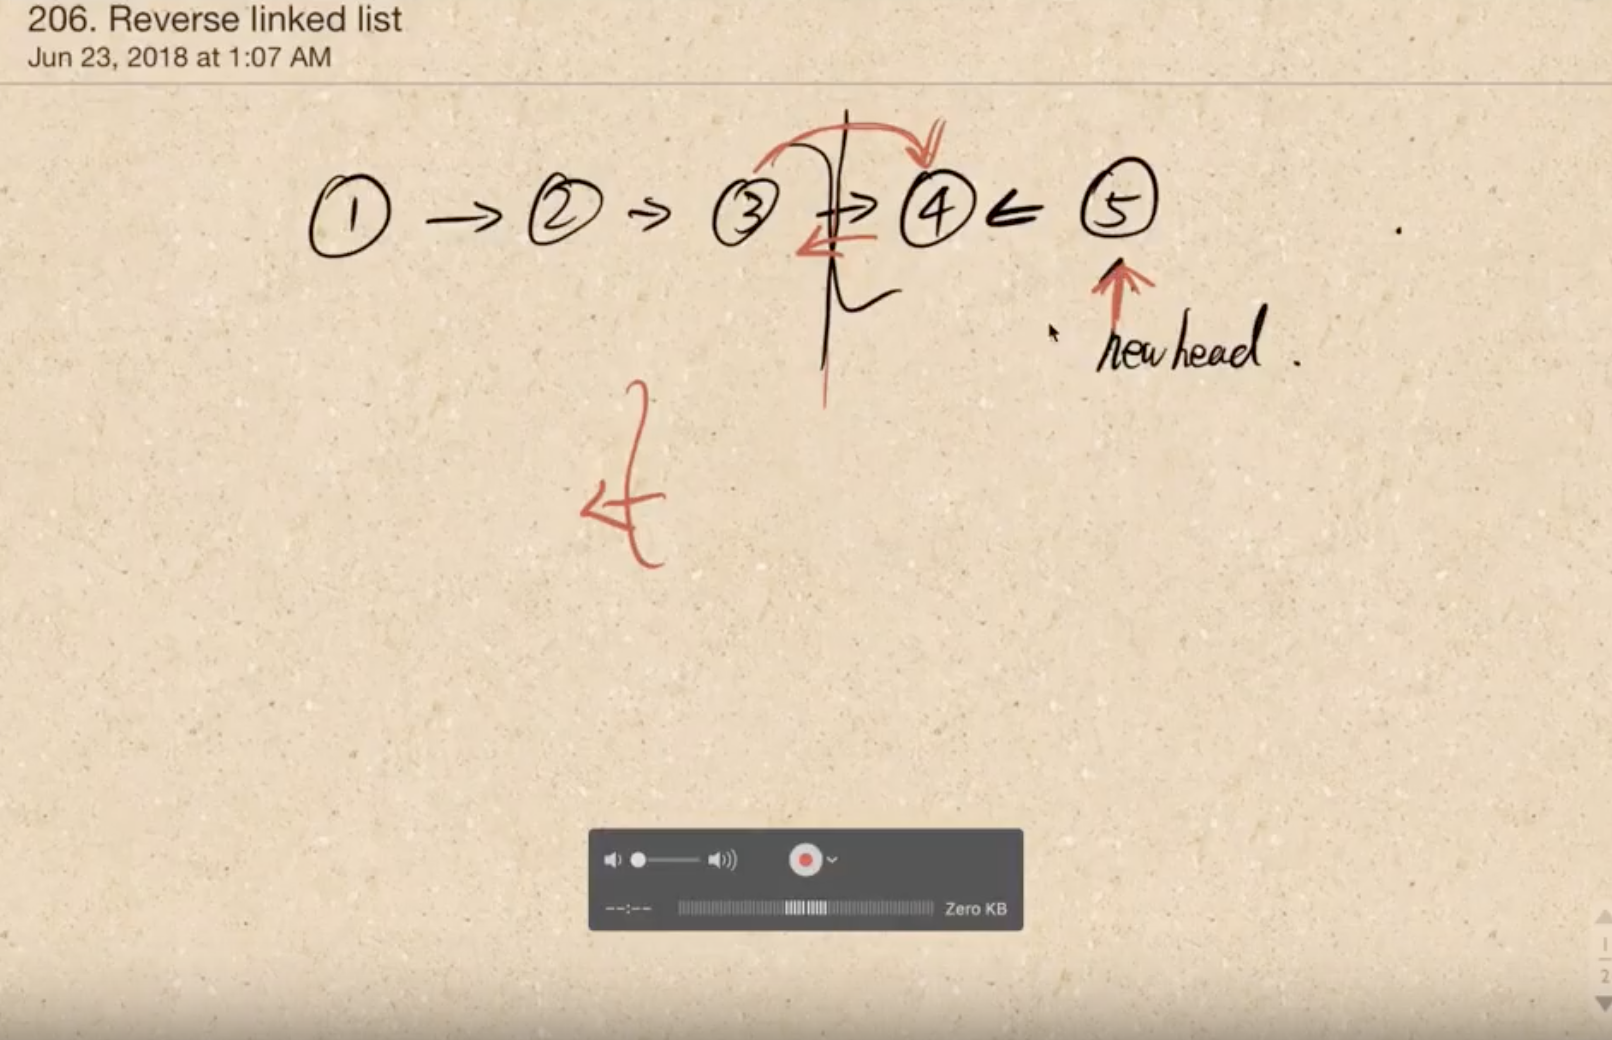 206. Reverse linked list
Jun 23, 2018 at 1:07 AM
① → ② → ③ → ④ ← ⑤
new head .
--:-- Zero KB
1
2